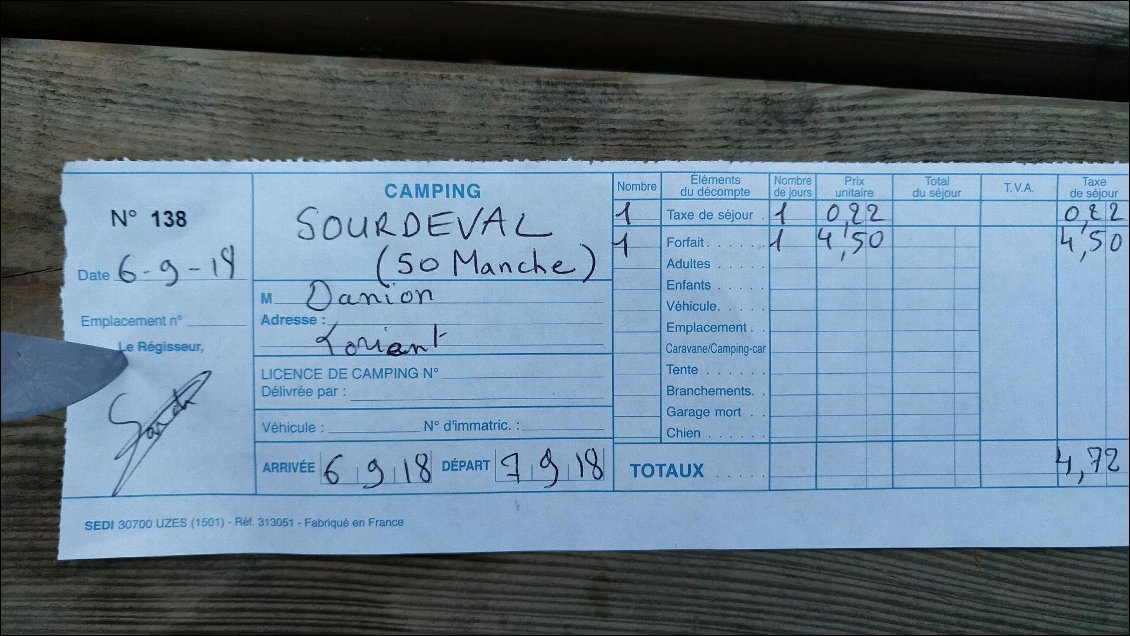 N° 138
Date 6-9-18
Emplacement n°
Le Régisseur,
CAMPING
SOURDEVAL
(50 Manche)
M Danion
Adresse :
Lorient
LICENCE DE CAMPING N°
Délivrée par :
Véhicule : N° d'immatric. :
ARRIVÉE 6 9 18 DÉPART 7 9 18
Nombre Éléments du décompte Nombre de jours Prix unitaire Total du séjour T.V.A. Taxe de séjour
1 Taxe de séjour . 1 0,22 0,22
1 Forfait . . . . . . 1 4,50 4,50
Adultes . . . . .
Enfants . . . . .
Véhicule. . . . .
Emplacement. . .
Caravane/Camping-car
Tente . . . . . .
Branchements. .
Garage mort . . .
Chien . . . . . .
TOTAUX . . . . . 4,72
SEDI 30700 UZES (1501) - Réf. 313051 - Fabriqué en France